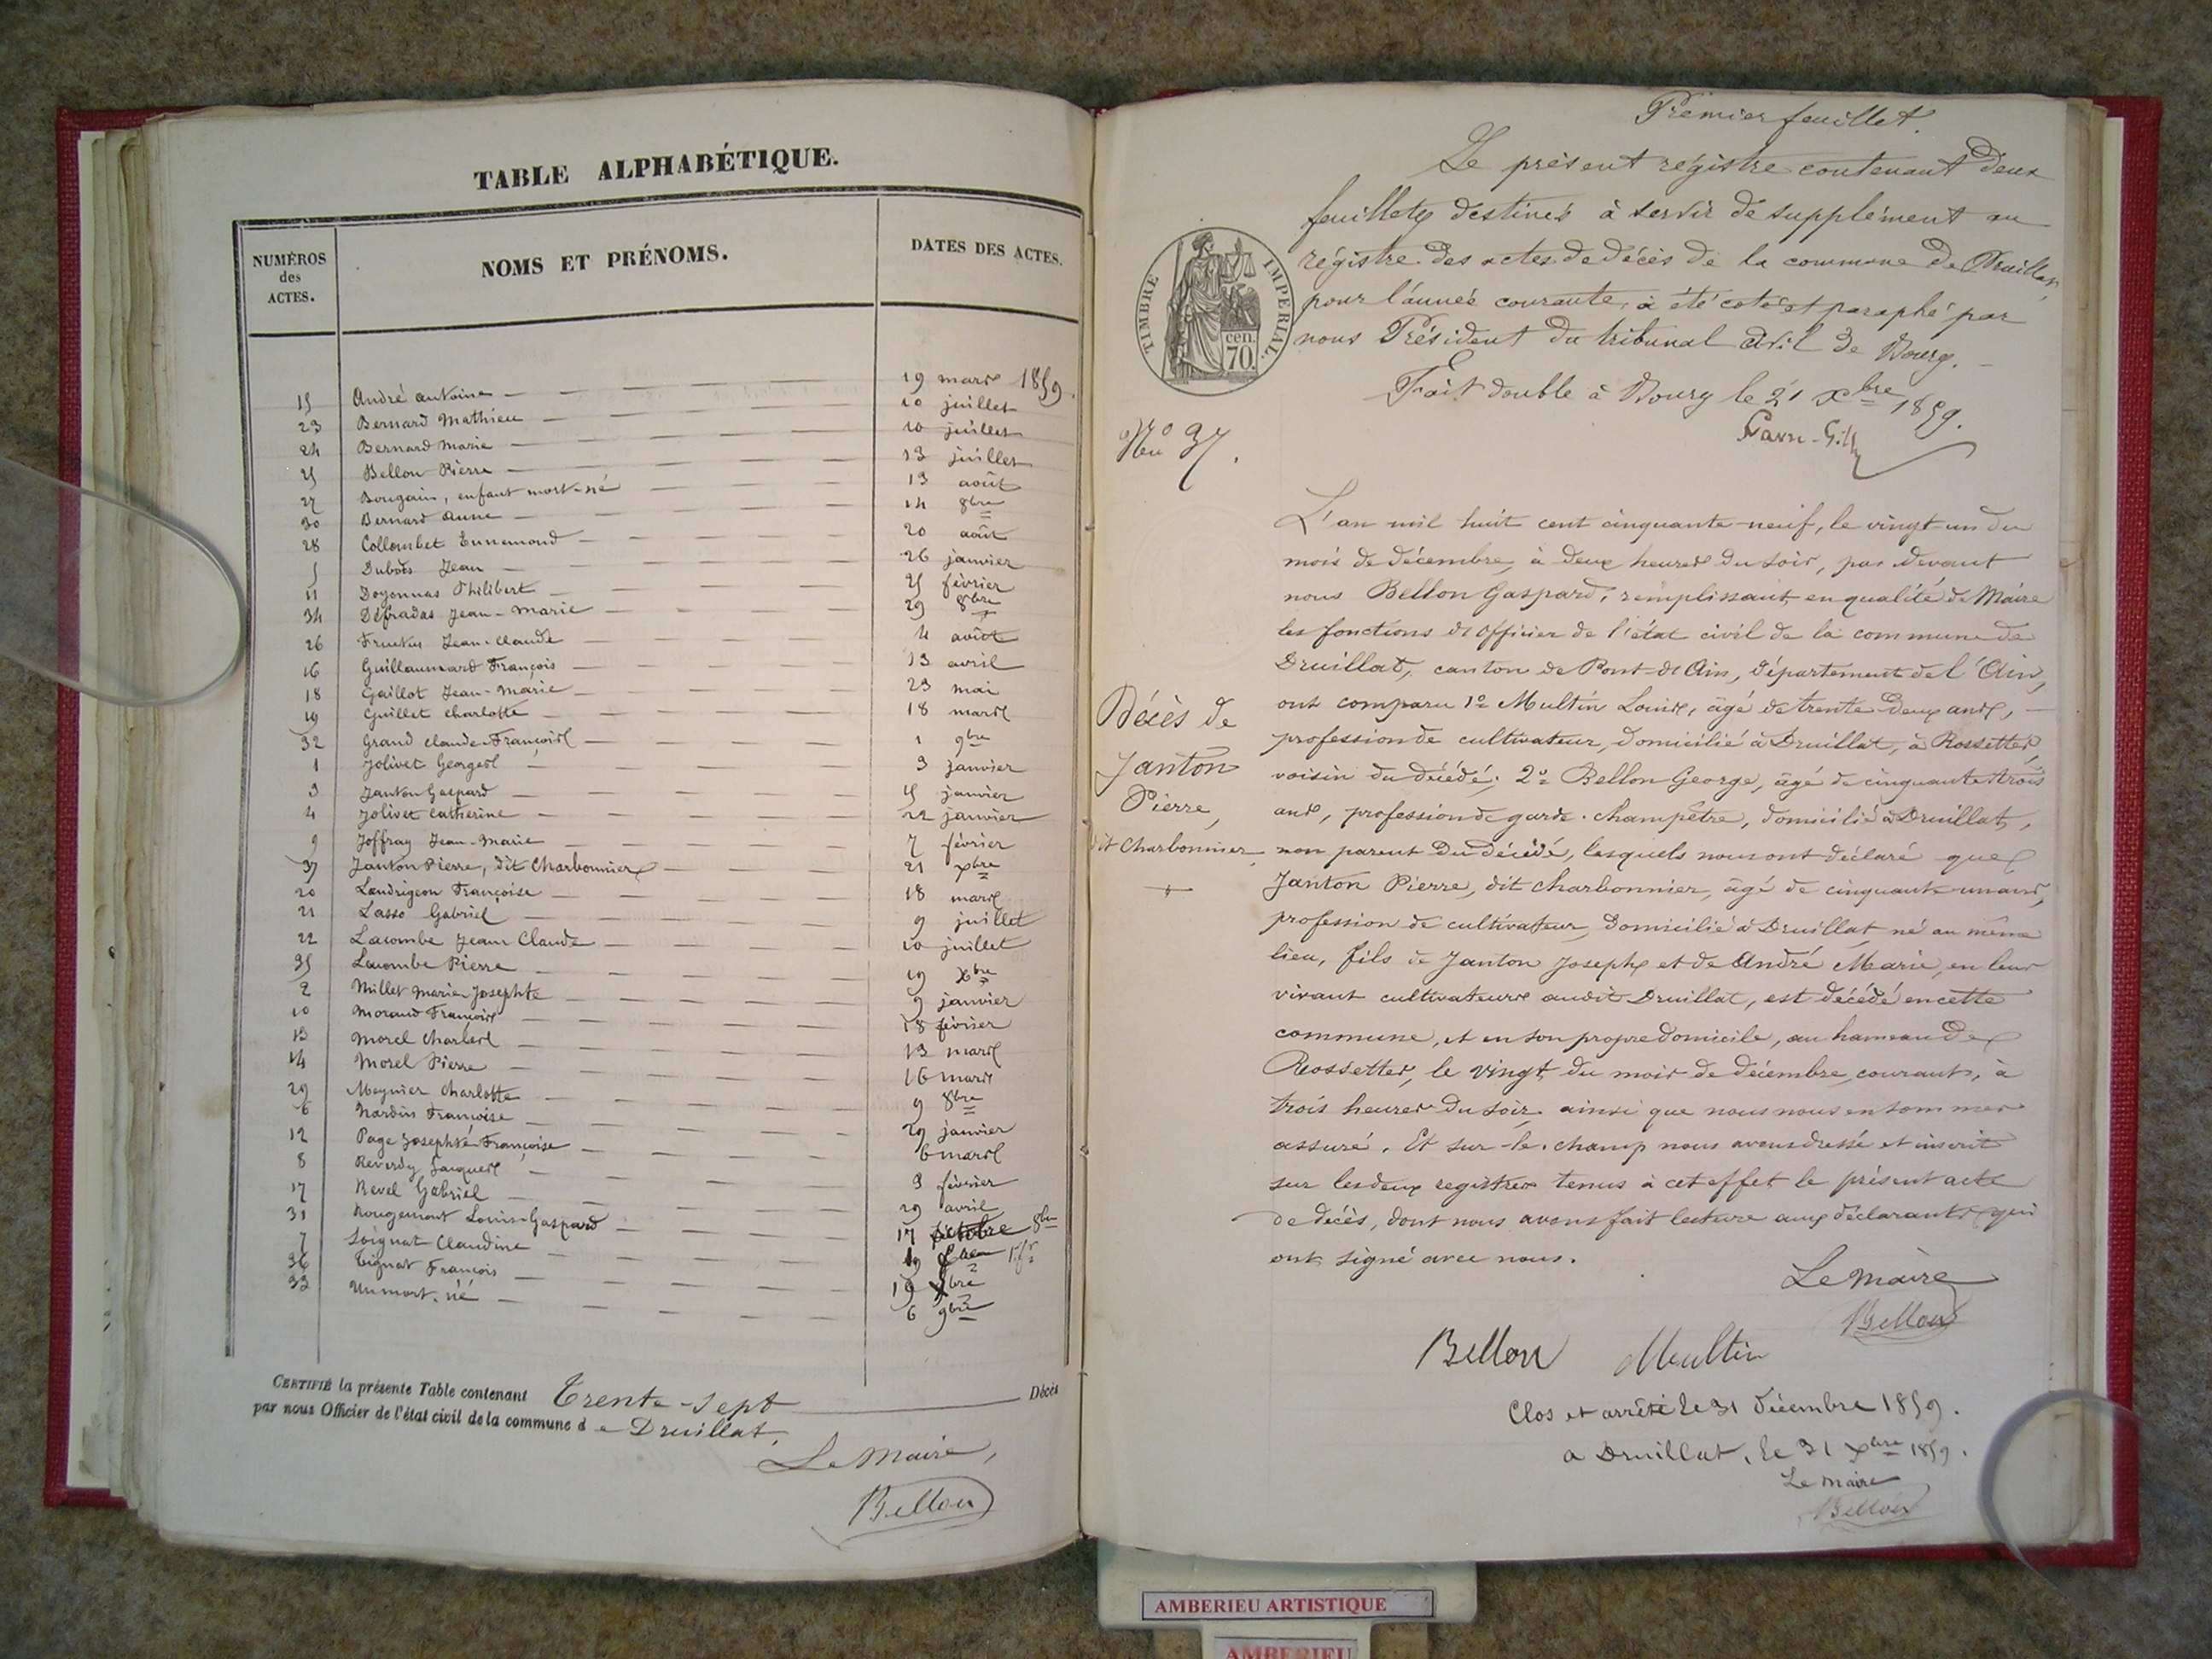 TABLE ALPHABÉTIQUE.
NUMÉROS des ACTES. NOMS ET PRÉNOMS. DATES DES ACTES.
15 André antoine 19 mars 1859.
23 Bernard Mathieu 10 juillet
24 Bernard Marie 10 juillet
25 Bellon Pierre 13 juillet
27 Bougain, enfant mort-né 13 août
30 Bernard Anne 14 8bre
28 Collombet Ennemond 20 août
5 Dubois Jean 26 janvier
11 Doyonnas Philibert 25 février
34 Défradas Jean-Marie 29 8bre
26 Jean-Claude 4 août
16 Guillaumard François 13 avril
18 Gaillot Jean-Marie 23 mai
19 Guillet charlotte 18 mars
32 Grand Claude-François 1 9bre
1 Jolivet Georges 3 janvier
3 Janton Gaspard 15 janvier
4 Jolivet Catherine 22 janvier
9 Joffray Jean-Marie 7 février
37 Janton Pierre, dit Charbonnier 21 xbre
20 Landrigeon Françoise 18 mars
21 Lasso Gabriel 9 juillet
22 Lacombe Jean Claude 10 juillet
35 Lacombe Pierre 19 Xbre
2 Millet Marie-Josephte 9 janvier
10 Morand François 18 février
13 Morel Charles 13 mars
14 Morel Pierre 16 mars
29 Meynier Charlotte 9 8bre
6 Nardin Françoise 29 janvier
12 Page Josephte Françoise 6 mars
8 Reverdy Jacques 3 février
17 Revel Gabriel 29 avril
31 Rougemont Louis-Gaspard 17 octobre 8bre
7 Soignat Claudine
36 Tignat François 19 Xbre
33 Un mort-né 6 9bre
CERTIFIÉ la présente Table contenant Trente-sept Décès
par nous Officier de l'état civil de la commune de Druillat.
Le Maire,
Bellon
Premier feuillet.
Le présent régistre contenant deux
feuillets destinés à servir de supplément au
régistre des actes de décès de la commune de Druillat,
pour l'année courante, à été coté et paraphé par
nous Président du tribunal civil de Bourg.
Fait double à Bourg le 21 xbre 1859.
TIMBRE IMPERIAL.
cen.
70.
No 37.
L'an mil huit cent cinquante-neuf, le vingt-un du
mois de décembre, à deux heures du soir, par devant
nous Bellon Gaspard, remplissant en qualité de Maire
les fonctions d'officier de l'état civil de la commune de
Druillat, canton de Pont-d'Ain, département de l'Ain,
ont comparu 1o Multin Louis, âgé de trente-deux ans,
profession de cultivateur, domicilié à Druillat, à Rossettes,
voisin du décédé; 2o Bellon George, âgé de cinquante-trois
ans, profession de garde-champêtre, domicilié à Druillat,
non parent du décédé, lesquels nous ont déclaré que
Janton Pierre, dit charbonnier, âgé de cinquante-un ans,
profession de cultivateur, domicilié à Druillat, né au même
lieu, fils de Janton Joseph et de André Marie, en leur
vivant cultivateurs audit Druillat, est décédé en cette
commune, et en son propre domicile, au hameau de
Rossettes, le vingt du mois de décembre courant, à
trois heures du soir, ainsi que nous nous en sommes
assuré. Et sur-le-champ nous avons dressé et inscrit
sur les deux registres tenus à cet effet le présent acte
de décès, dont nous avons fait lecture aux déclarants qui
ont signé avec nous.
Décès de
Janton
Pierre,
dit Charbonnier
Le Maire
Bellon
Bellon Multin
Clos et arrêté le 31 décembre 1859.
a Druillat, le 31 xbre 1859.
Le maire
Bellon
AMBERIEU ARTISTIQUE
AMBERIEU